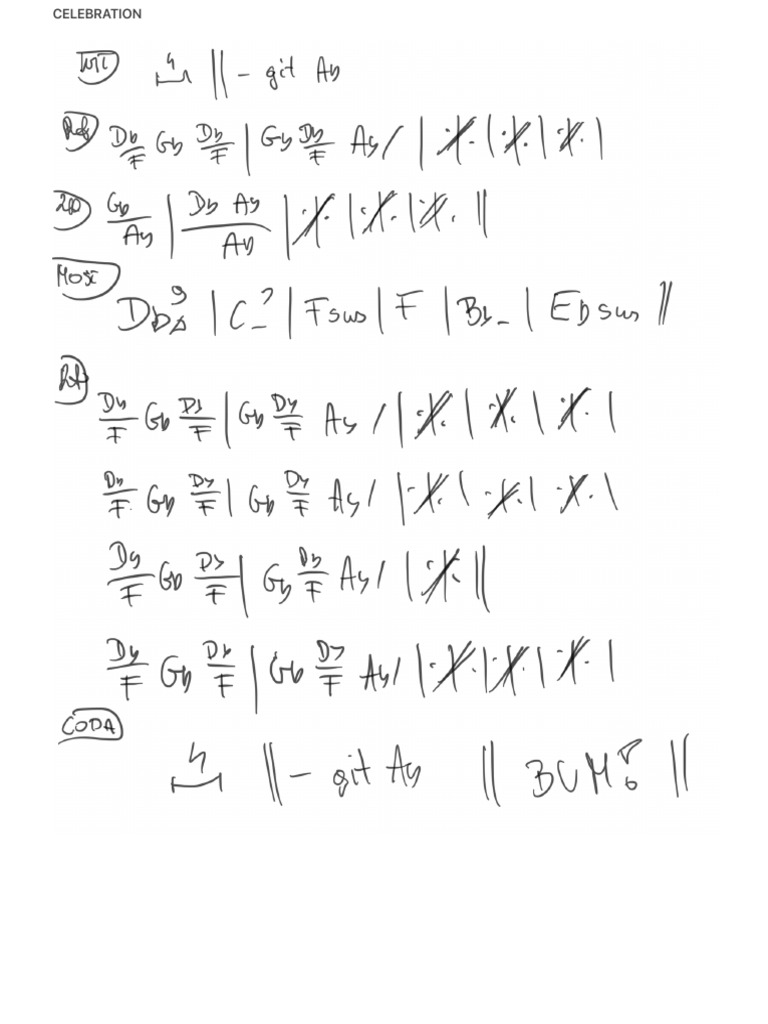 CELEBRATION
INT 4 || - git Ab
Ref Db/F Gb Db/F | Gb Db/F Ab / | ·//. | ·//. | ·//. |
Gb/Ab | Db Ab/Ab | ·//. | ·//. | ·//. ||
MOST Db9Δ | C-7 | Fsus | F | Bb- | Ebsus ||
Ref
Db/F Gb Db/F | Gb Db/F Ab / | ·//. | ·//. | ·//. |
Db/F Gb Db/F | Gb Db/F Ab / | ·//. | ·//. | ·//. |
Db/F Gb Db/F | Gb Db/F Ab / | ·//. ||
Db/F Gb Db/F | Gb Db/F Ab / | ·//. | ·//. | ·//. |
CODA
4 || - git Ab || BUM ||